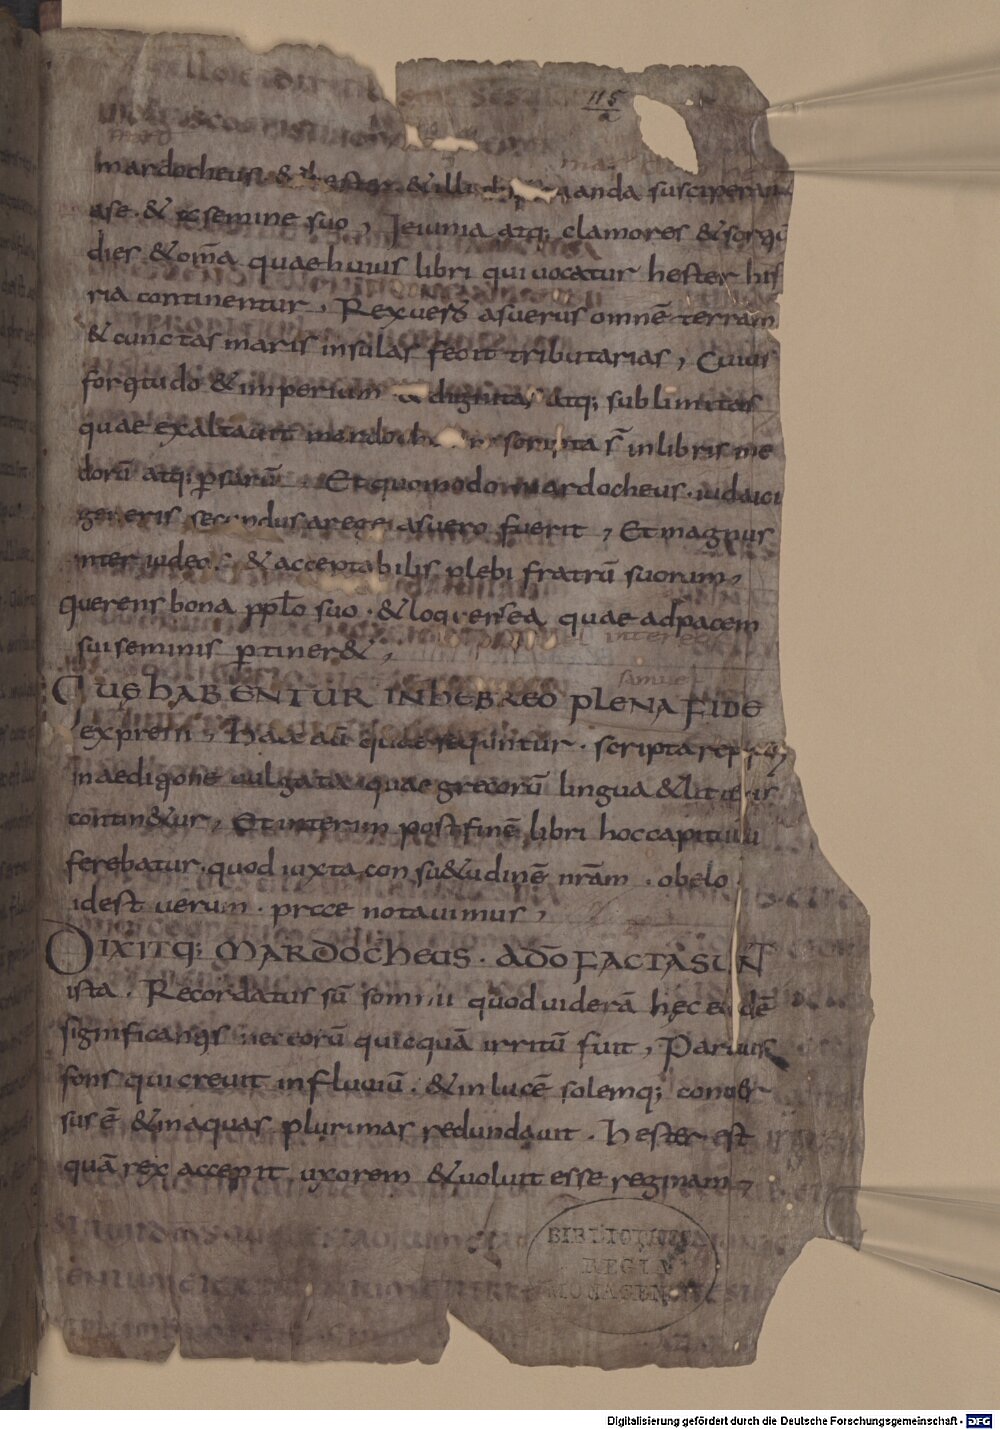 115
mardocheus & hester & illi obseruanda susciperant
a se · & semine suo , Ieiunia atq; clamores & sorqū
dies & om̄a quae huius libri qui uocatur hester his
ria continentur , Rex uero asuerus omnē terram
& cunctas maris insulas fecit tributarias , Cuius
forqtudo & imperium & dignitas atq; sublimitas
quae exaltauit mardoche scripta s̄ in libris me
dorū atq; ꝑsarū Et quomodo mardocheus · iudaici
generis secundus a rege asuero fuerit , Et magnus
inter iudeos & acceptabilis plebi fratrū suorum ,
querens bona pplo suo · & loquens ea quae ad pacem
sui seminis ꝑtiner& ,
QUĘ HABENTUR IN HEBREO PLENA FIDE
expressi , Haec aū quae sequntur · scripta repperi
in aediqone uulgata quae grecorū lingua & litteris
contin&ur , Et interim post finē libri hoc capitulū
ferebatur · quod iuxta consu&udinē nr̄am · obelo
id est ueru · prece notauimus ,
DIXITq; MARDOCHEUS · A DŌ FACTA SUNT
ista . Recordatus sū somnii quod uiderā hęc eadē
significanqs nec eorū quicquā irritū fuit , Paruus
fons qui creuit in fluuiū · & in lucē solemq; conuer
sus ē & in aquas plurimas redundauit . Hester est
quā rex accepit uxorem & uoluit esse reginam ,
BIBLIOTHECA
REGIA
MONACENSIS
Digitalisierung gefördert durch die Deutsche Forschungsgemeinschaft - DFG